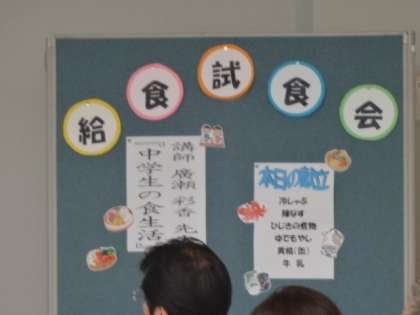 給食試食会
講師 廣瀬 彩香 先
『中学生の食生活』
本日の献立
冷しゃぶ
ひじきの煮物
ゆでもやし
牛乳